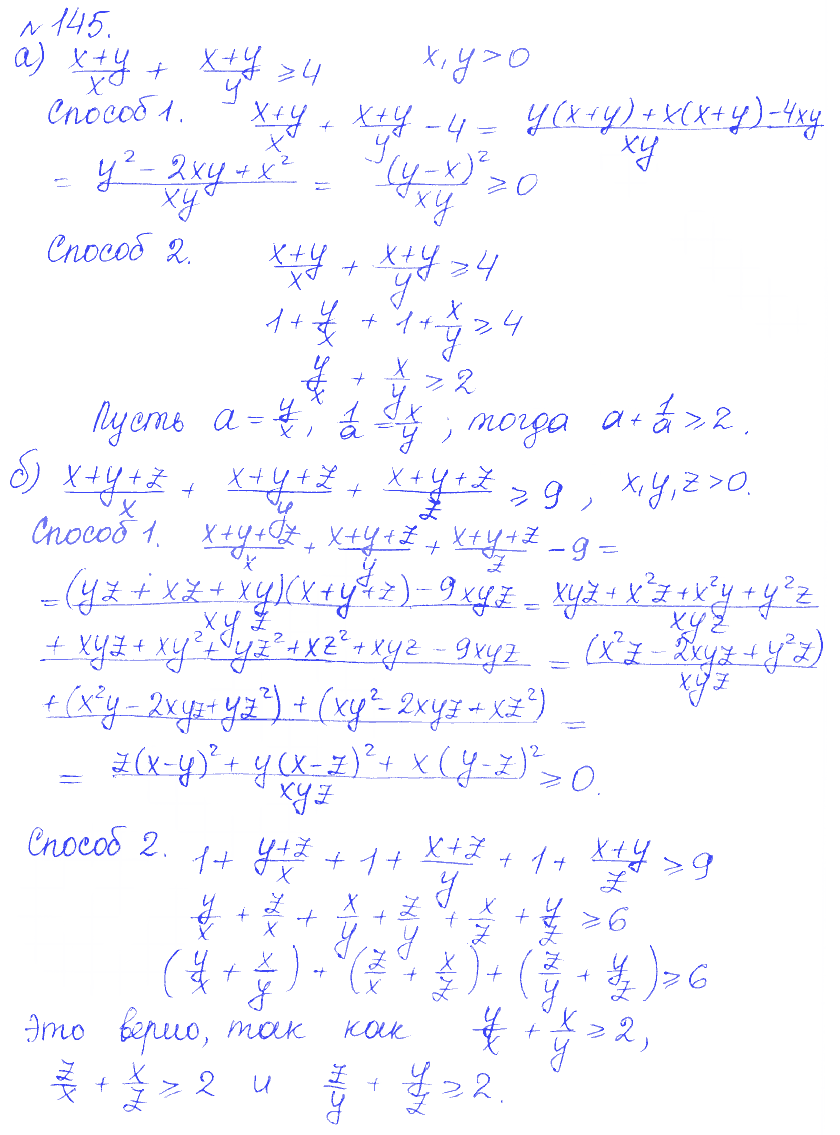 №145.
а) (x+y)/x + (x+y)/y ≥ 4     x, y > 0
Способ 1.   (x+y)/x + (x+y)/y − 4 = (y(x+y) + x(x+y) − 4xy)/(xy)
= (y² − 2xy + x²)/(xy) = (y−x)²/(xy) ≥ 0
Способ 2.   (x+y)/x + (x+y)/y ≥ 4
1 + y/x + 1 + x/y ≥ 4
y/x + x/y ≥ 2
Пусть a = y/x, 1/a = x/y ; тогда a + 1/a ≥ 2.
б) (x+y+z)/x + (x+y+z)/y + (x+y+z)/z ≥ 9 , x, y, z > 0.
Способ 1.   (x+y+z)/x + (x+y+z)/y + (x+y+z)/z − 9 =
= ((yz + xz + xy)(x+y+z) − 9xyz)/(xyz) = (xyz + x²z + x²y + y²z
+ xyz + xy² + yz² + xz² + xyz − 9xyz)/(xyz) = ((x²z − 2xyz + y²z)
+ (x²y − 2xyz + yz²) + (xy² − 2xyz + xz²))/(xyz) =
= (z(x−y)² + y(x−z)² + x(y−z)²)/(xyz) ≥ 0.
Способ 2.   1 + (y+z)/x + 1 + (x+z)/y + 1 + (x+y)/z ≥ 9
y/x + z/x + x/y + z/y + x/z + y/z ≥ 6
(y/x + x/y) + (z/x + x/z) + (z/y + y/z) ≥ 6
Это верно, так как y/x + x/y ≥ 2,
z/x + x/z ≥ 2 и z/y + y/z ≥ 2.